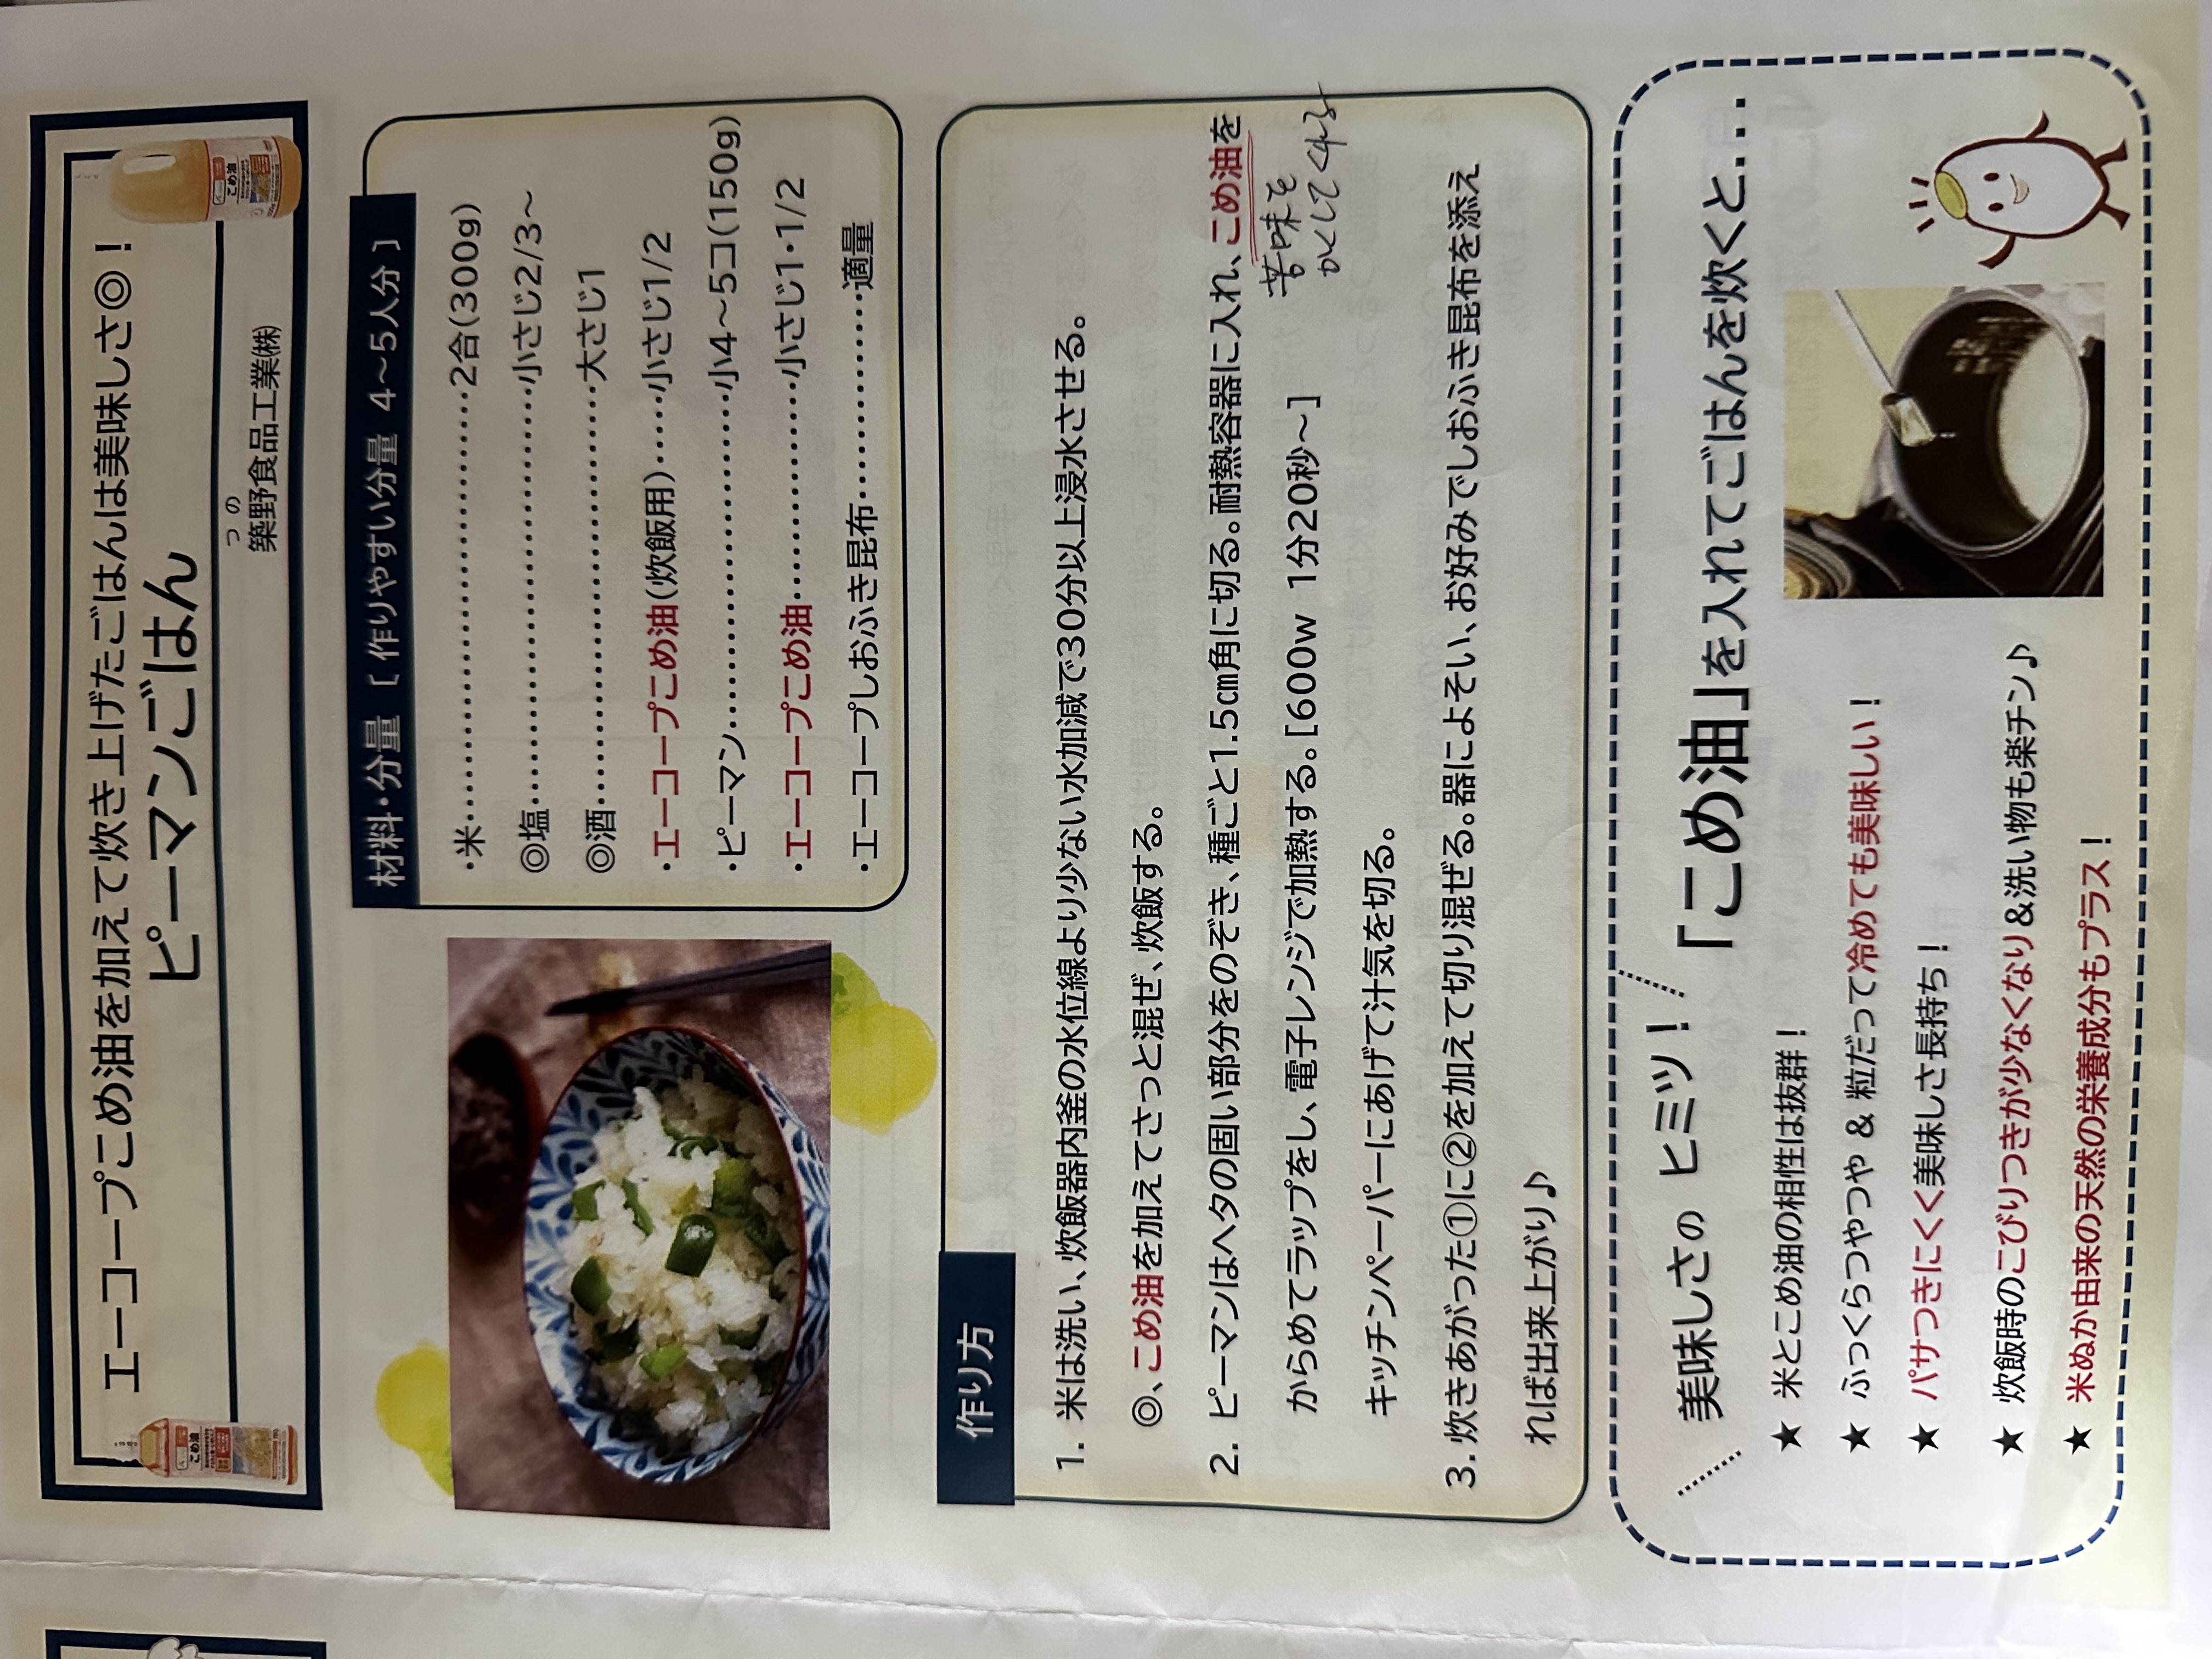 エーコープこめ油を加えて炊き上げたごはんは美味しさ◎！
ピーマンごはん
つの
築野食品工業㈱
こめ油
こめ油
材料・分量［作りやすい分量 4～5人分］
・米…………………………2合(300g)
◎塩…………………………小さじ2/3～
◎酒…………………………大さじ1
・エーコープこめ油(炊飯用)……小さじ1/2
・ピーマン…………………小4～5コ(150g)
・エーコープこめ油…………小さじ1・1/2
・エーコープしおふき昆布…………適量
作り方
1. 米は洗い、炊飯器内釜の水位線より少ない水加減で30分以上浸水させる。
◎、こめ油を加えてさっと混ぜ、炊飯する。
2. ピーマンはヘタの固い部分をのぞき、種ごと1.5㎝角に切る。耐熱容器に入れ、こめ油を
苦味を
かくしてくれる
からめてラップをし、電子レンジで加熱する。[600w 1分20秒～]
キッチンペーパーにあげて汁気を切る。
3. 炊きあがった①に②を加えて切り混ぜる。器によそい、お好みでしおふき昆布を添え
れば出来上がり♪
美味しさの ヒミツ！「こめ油」を入れてごはんを炊くと…
★ 米とこめ油の相性は抜群！
★ ふっくらつやつや & 粒だって冷めても美味しい！
★ パサつきにくく美味しさ長持ち！
★ 炊飯時のこびりつきが少なくなり&洗い物も楽チン♪
★ 米ぬか由来の天然の栄養成分もプラス！